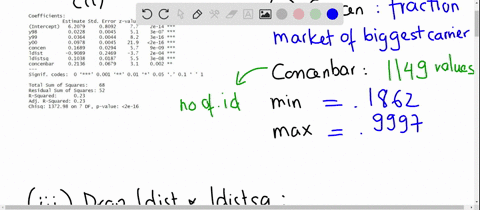 (ii)
Coefficients:
Estimate Std. Error z-value
(Intercept) 6.2079 0.8092 7.7 2e-14 ***
y98 0.0228 0.0045 5.1 3e-07 ***
y99 0.0364 0.0044 8.2 3e-16 ***
y00 0.0978 0.0045 21.9 <2e-16 ***
concen 0.1689 0.0294 5.7 9e-09 ***
ldist -0.9089 0.2469 -3.7 2e-04 ***
ldistsq 0.1038 0.0187 5.5 3e-08 ***
concenbar 0.2136 0.0679 3.1 0.002 **
---
Signif. codes: 0 '***' 0.001 '**' 0.01 '*' 0.05 '.' 0.1 ' ' 1
Total Sum of Squares: 68
Residual Sum of Squares: 52
R-Squared: 0.23
Adj. R-Squared: 0.23
Chisq: 1372.98 on 7 DF, p-value: <2e-16
: fraction
market of biggest carrier
Concenbar : 1149 values
no of. id
min = .1862
max = .9997
(iii) Drop ldist & ldistsq :